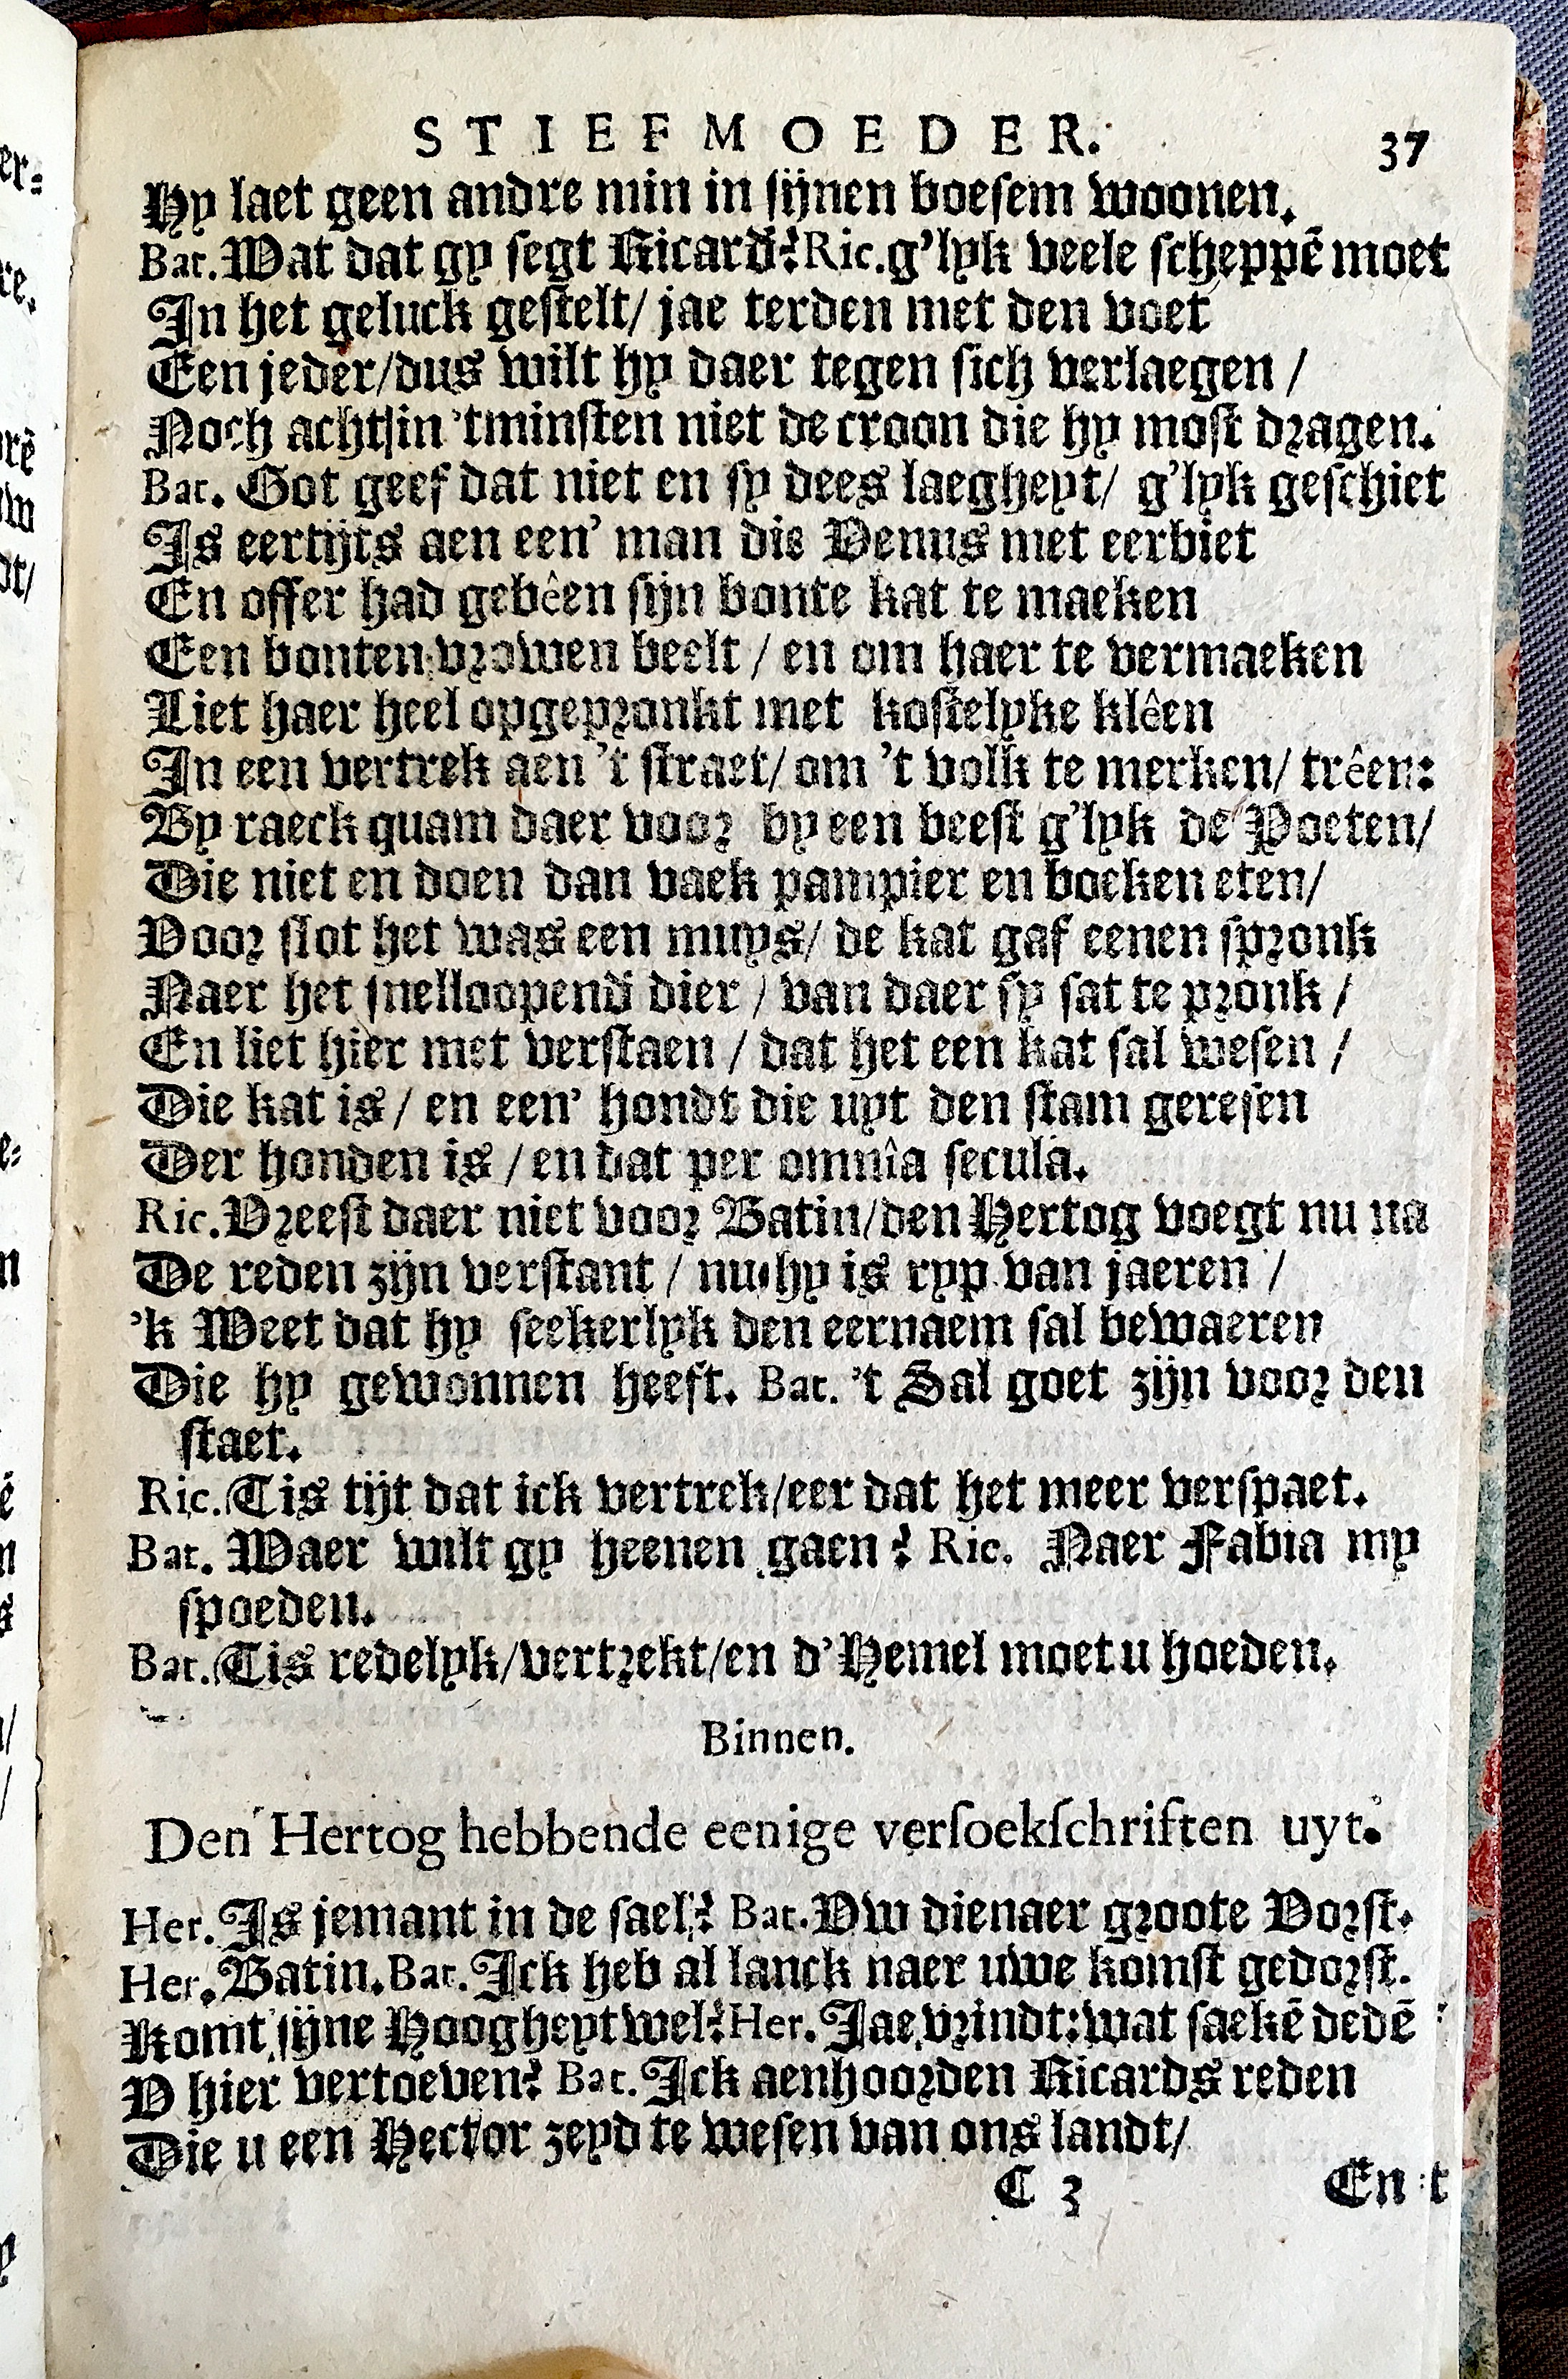 STIEFMOEDER. 37
Hy laet geen andre min in sijnen boesem woonen.
Bat. Wat dat gy segt Ricard? Ric. g'lyk veele scheppē moet
In het geluck gestelt/ jae terden met den voet
Een jeder/ dus wilt hy daer tegen sich verlaegen /
Noch acht sin 'tminsten niet de croon die hy most dragen.
Bat. Got geef dat niet en sy dees laegheyt/ g'lyk geschiet
Is eertijts aen een' man die Venus met eerbiet
En offer had gebêen sijn bonte kat te maeken
Een bonten vrowen beelt / en om haer te vermaeken
Liet haer heel opgepronkt met kostelyke klêen
In een vertrek aen 't straet/ om 't volk te merken/ trêen:
By raeck quam daer voor by een beest g'lyk de Poeten/
Die niet en doen dan vaek pampier en boeken eten/
Voor slot het was een muys/ de kat gaf eenen spronk
Naer het snelloopend dier / van daer sy sat te pronk /
En liet hier met verstaen / dat het een kat sal wesen /
Die kat is / en een' hondt die uyt den stam geresen
Der honden is / en dat per omnîa secula.
Ric. Vreest daer niet voor Batin/ den Hertog voegt nu na
De reden zijn verstant / nu hy is ryp van jaeren /
'k Weet dat hy seekerlyk den eernaem sal bewaeren
Die hy gewonnen heeft. Bat. 't Sal goet zijn voor den
staet.
Ric. Tis tijt dat ick vertrek/ eer dat het meer verspaet.
Bat. Waer wilt gy heenen gaen? Ric. Naer Fabia my
spoeden.
Bat. Tis redelyk/ vertrekt/ en d'Hemel moet u hoeden.
Binnen.
Den Hertog hebbende eenige versoekschriften uyt.
Her. Is jemant in de sael? Bat. Vw dienaer groote Vorst.
Her. Batin. Bat. Ick heb al lanck naer uwe komst gedorst.
Komt sijne Hoogheyt wel? Her. Jae vrindt: wat saekē dedē
V hier vertoeven? Bat. Ick aenhoorden Ricards reden
Die u een Hector zeyd te wesen van ons landt/
C 3 En t